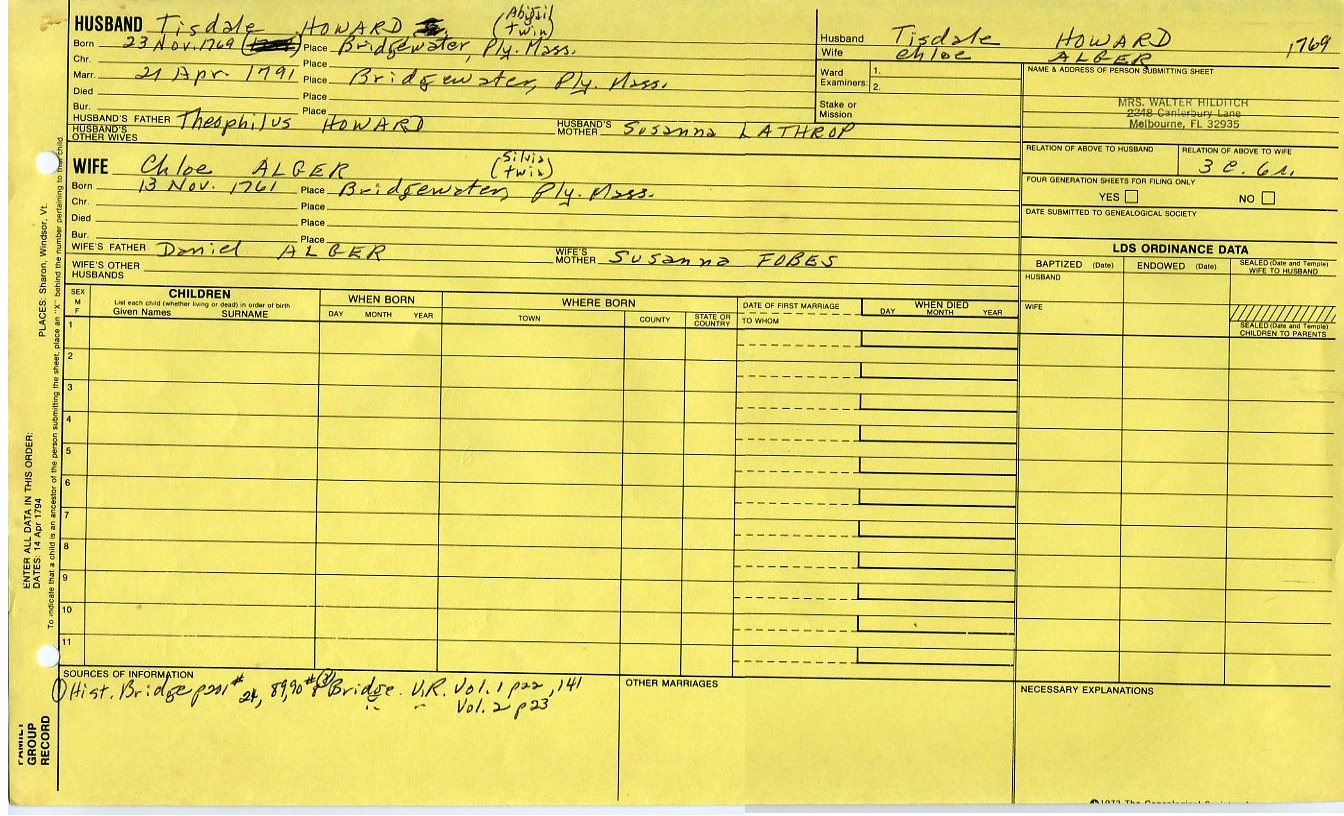 HUSBAND Tisdale HOWARD (Abigail twin)
Born 23 Nov. 1769 Place Bridgewater, Ply. Mass.
Chr. Place
Marr. 21 Apr. 1791 Place Bridgewater, Ply. Mass.
Died Place
Bur. Place
HUSBAND'S FATHER Theophilus HOWARD HUSBAND'S MOTHER Susanna LATHROP
HUSBAND'S OTHER WIVES
WIFE Chloe ALGER (Silvia twin)
Born 13 Nov. 1761 Place Bridgewater, Ply. Mass.
Chr. Place
Died Place
Bur. Place
WIFE'S FATHER Daniel ALGER WIFE'S MOTHER Susanna FOBES
WIFE'S OTHER HUSBANDS
Husband Tisdale HOWARD 1769
Wife Chloe ALGER
Ward Examiners: 1.
2.
Stake or Mission
NAME & ADDRESS OF PERSON SUBMITTING SHEET
MRS. WALTER HILDITCH
2248 Canterbury Lane
Melbourne, FL 32935
RELATION OF ABOVE TO HUSBAND RELATION OF ABOVE TO WIFE
3 c. 6 r.
FOUR GENERATION SHEETS FOR FILING ONLY
YES NO
DATE SUBMITTED TO GENEALOGICAL SOCIETY
LDS ORDINANCE DATA
BAPTIZED (Date) ENDOWED (Date) SEALED (Date and Temple) WIFE TO HUSBAND
HUSBAND
WIFE
SEALED (Date and Temple) CHILDREN TO PARENTS
SEX M F
CHILDREN
List each child (whether living or dead) in order of birth
Given Names SURNAME
WHEN BORN
DAY MONTH YEAR
WHERE BORN
TOWN COUNTY STATE OR COUNTRY
DATE OF FIRST MARRIAGE
TO WHOM
WHEN DIED
DAY MONTH YEAR
1
2
3
4
5
6
7
8
9
10
11
SOURCES OF INFORMATION
(1) Hist. Bridge p201 # 24, 89,90 # & (3) Bridge. V.R. Vol. 1 p22, 141
" " Vol. 2 p23
OTHER MARRIAGES
NECESSARY EXPLANATIONS
PLACES: Sharon, Windsor, Vt.
ENTER ALL DATA IN THIS ORDER:
DATES: 14 Apr 1794
To indicate that a child is an ancestor of the person submitting the sheet, place an "X" behind the number pertaining to that child.
FAMILY GROUP RECORD